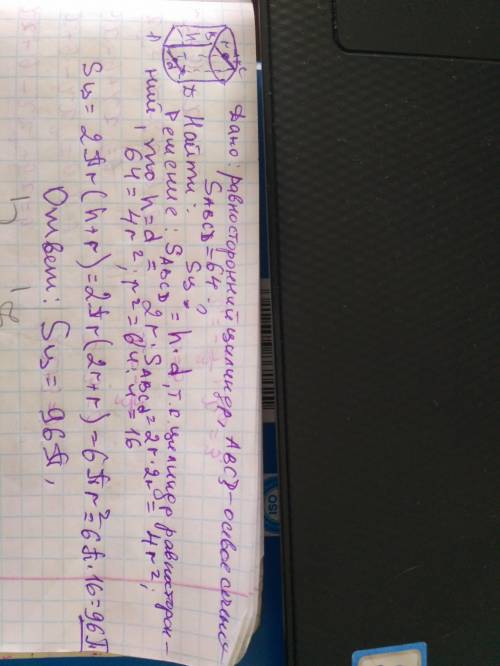 Дано: равносторонний цилиндр, ABCD-осевое сечение
SABCD=64.
Найти: Sц
Решение: SABCD = h·d, т.е. цилиндр равносторон-
ний, то h=d= 2r. SABCD=2r·2r=4r²;
64=4r²; r²=64:4=16
Sц=2πr(h+r)=2πr(2r+r)=6πr²=6π·16=96π
Ответ: Sц=96π,
ISO